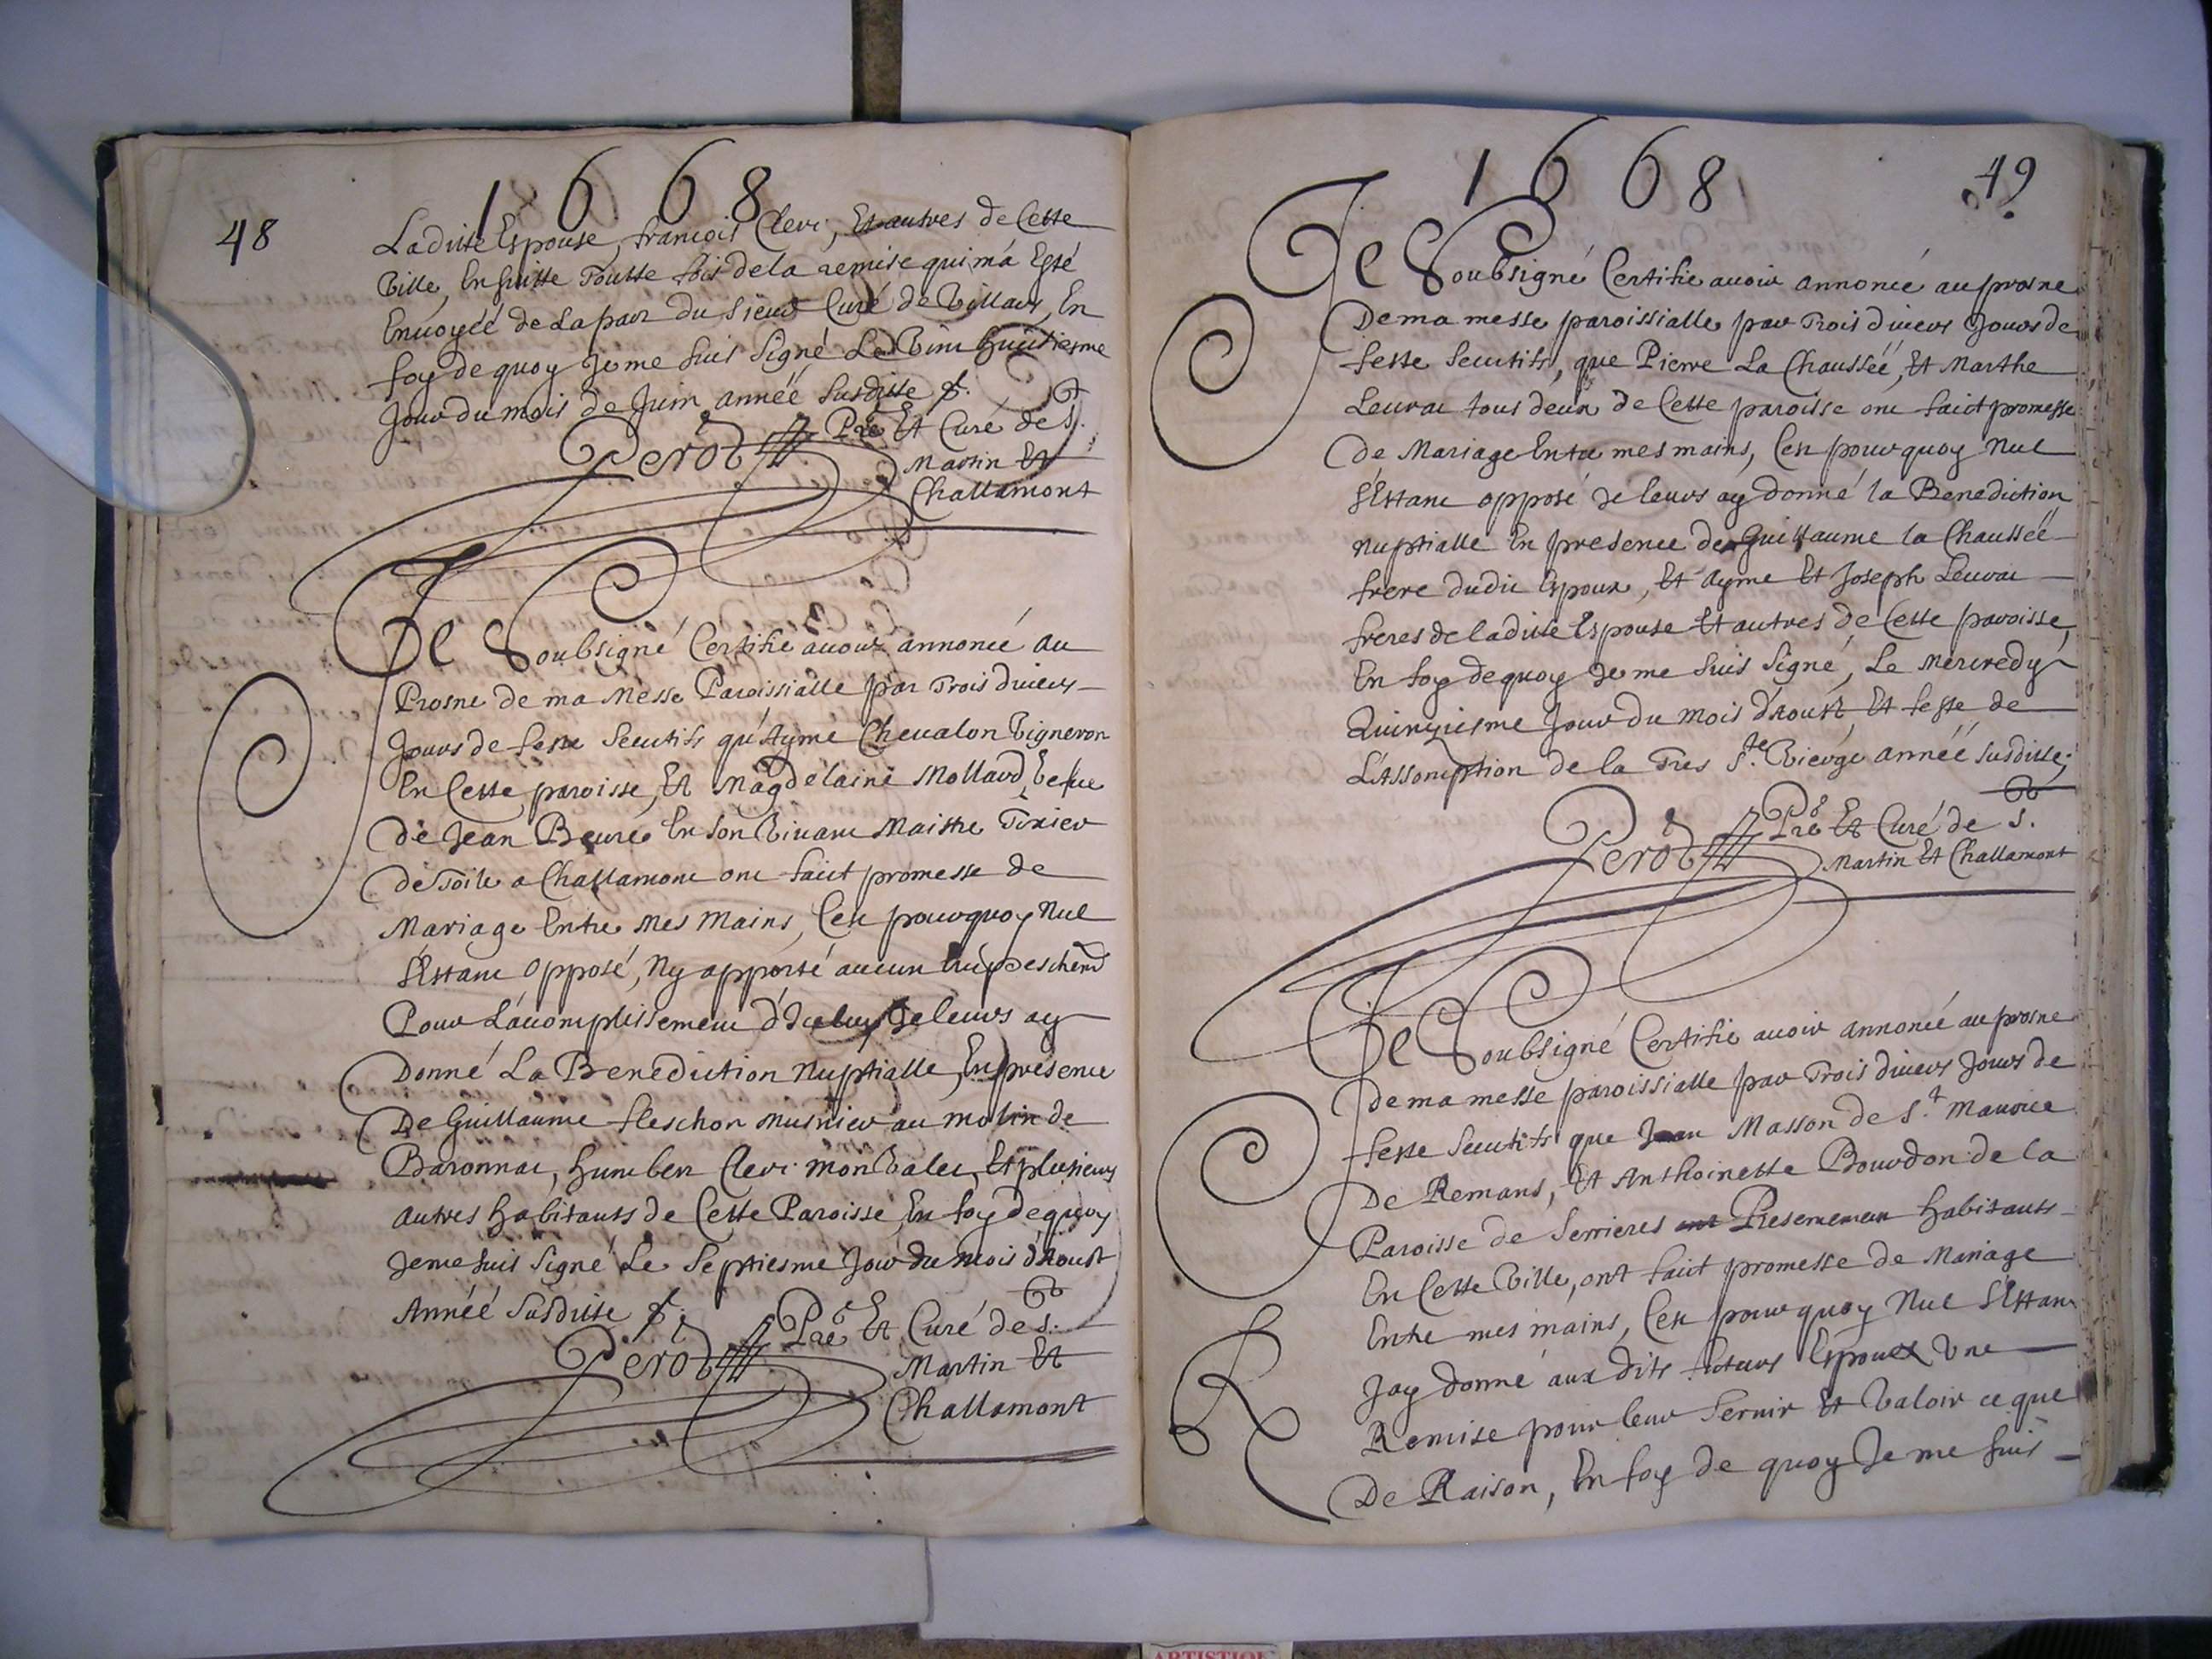 1668
48
Laditte Espouse, francois Clerc, Et autres de Cette
Ville, En suitte Toutte fois de la remise qui má Esté
Envoyéé de La part du Sieur Curé de Villars, En
foy de quoy Je me suis Signé Le Vint huictiesme
Jour du mois de Juin annéé susditte
Perod Pre Et Curé de S.
Martin Et
Challamont
Je Soubsigné Certifie avoir annoncé au
Prosne de ma Messe Paroissialle par Trois divers
Jours de feste Secutifs qu'Aymé Chevalon Vigneron
En Cette paroisse, Et Magdelaine Mollard, Vefve
de Jean Beuré En son Vivant Maistre Tixier
de Toile a Challamont ont faict promesse de
Mariage Entre Mes Mains, C'est pourquoy Nul
s'Estant Opposé, Ny apporté aucun Empeschemt
Pour L'acomplissement d'Iceluy Je leurs ay
Donné La Benediction Nuptialle, En présence
De Guillaume fleschon Musnier au molin de
Baronnat, humbert Clerc mon Valet, Et plusieurs
autres habitants de Cette Paroisse, En foy de quoy
Je me suis Signé Le Septiesme Jour du Mois d'Aoust
Annéé Susditte
Perod Pre Et Curé de S.
Martin Et
Challamont
1668
49
Je Soubsigné Certifie avoir annoncé au prosne
De ma messe paroissialle par Trois divers Jours de
feste Secutifs, que Pierre La Chausséé, Et Marthe
Leurat tous deux de Cette paroisse ont faict promesse
de Mariage Entre mes mains, C'est pourquoy Nul
s'Estant opposé Je leurs ay donné la Benediction
Nuptialle En presence de Guillaume la Chausséé
frere dudit Espoux, Et Ayme Et Joseph Leurat
freres de laditte Espouse Et autres de Cette paroisse,
En foy de quoy Je me suis Signé, Le Mercredy
Quinziesme Jour du Mois d'Aoust Et feste de
L'Assomption de la Tres Ste. Vierge annéé susditte;
Perod Pre Et Curé de S.
Martin Et Challamont
Je Soubsigné Certifie avoir annoncé au prosne
de ma messe paroissialle par Trois divers Jours de
feste Secutifs que Jean Masson de S.t Maurice
De Remans, Et Anthoinette Bourdon de la
Paroisse de Serrieres ont Presentement habitants
En Cette Ville, ont faict promesse de Mariage
Entre mes mains, C'est pourquoy Nul s'Estant
Jay donné aux dits futurs Espoux Une
Remise pour leur Servir Et Valoir ce que
De Raison, En foy de quoy Je me suis